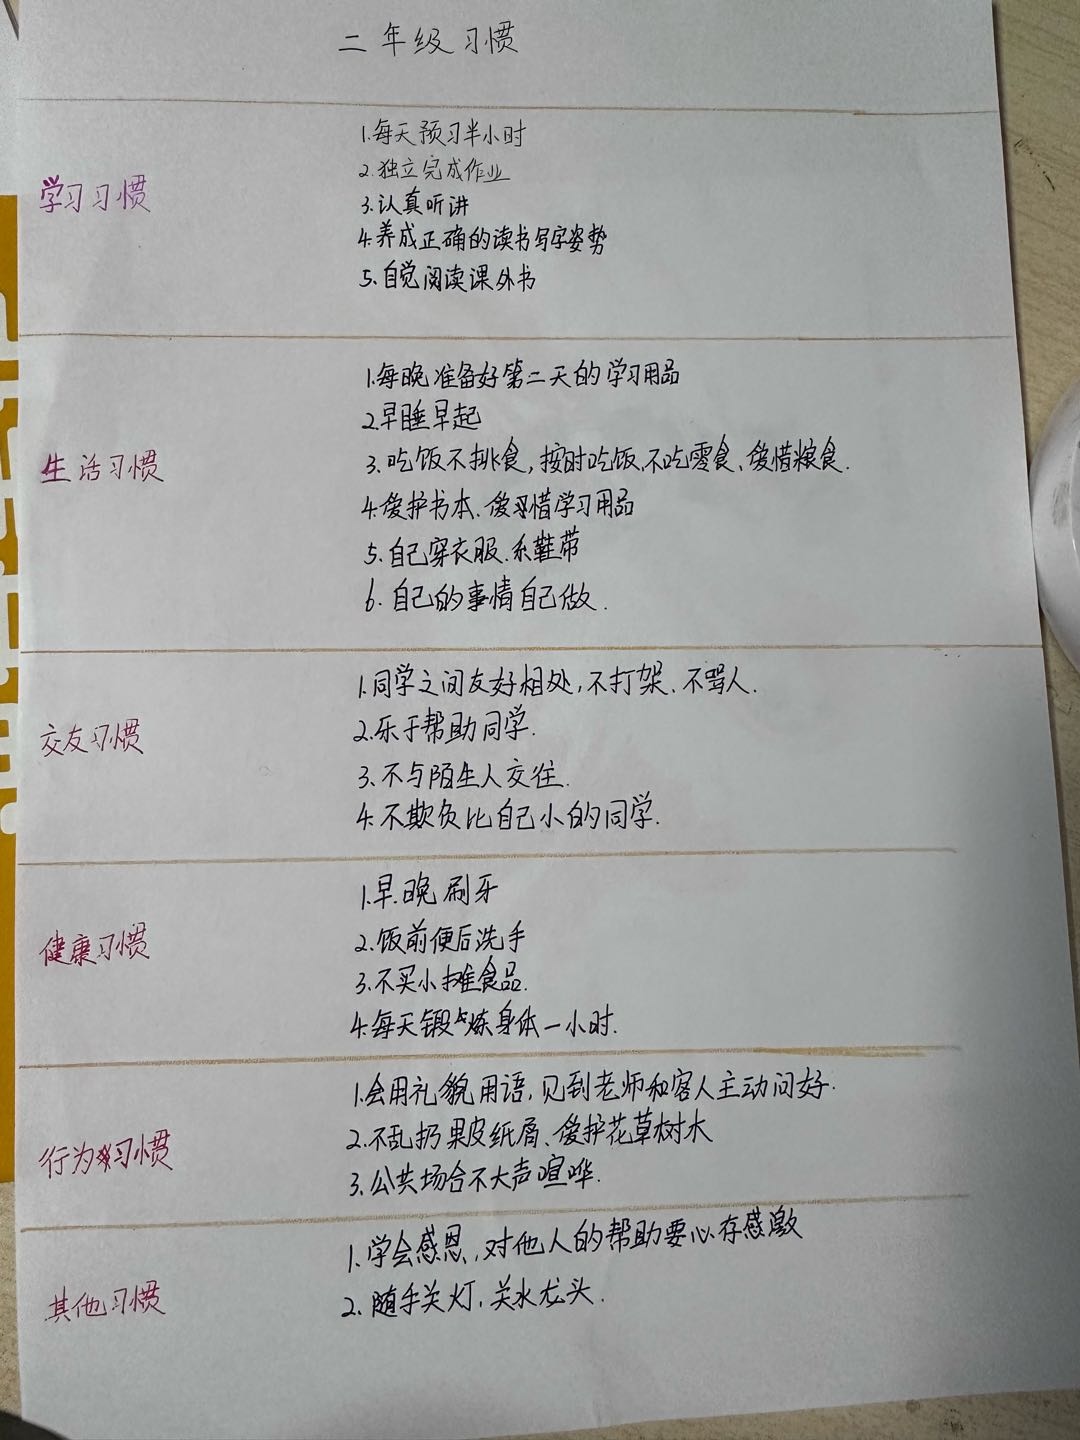 二年级习惯
学习习惯
1.每天预习半小时
2.独立完成作业
3.认真听讲
4.养成正确的读书写字姿势
5.自觉阅读课外书
生活习惯
1.每晚准备好第二天的学习用品
2.早睡早起
3.吃饭不挑食,按时吃饭,不吃零食、爱惜粮食.
4.爱护书本、爱惜学习用品
5.自己穿衣服、系鞋带
6.自己的事情自己做.
交友习惯
1.同学之间友好相处,不打架、不骂人.
2.乐于帮助同学.
3.不与陌生人交往.
4.不欺负比自己小的同学.
健康习惯
1.早.晚刷牙
2.饭前便后洗手
3.不买小摊食品.
4.每天锻炼身体一小时.
行为习惯
1.会用礼貌用语,见到老师和客人主动问好.
2.不乱扔果皮纸屑、爱护花草树木
3.公共场合不大声喧哗.
其他习惯
1.学会感恩,对他人的帮助要心存感激
2.随手关灯,关水龙头.